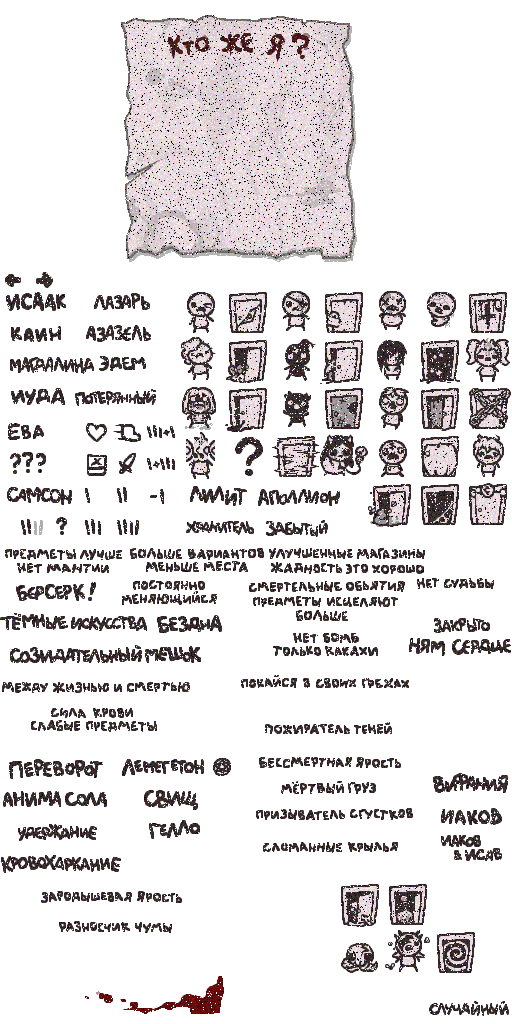 КТО ЖЕ Я?
ИСААК ЛАЗАРЬ
КАИН АЗАЗЕЛЬ
МАГДАЛИНА ЭДЕМ
ИУДА ПОТЕРЯННЫЙ
ЕВА
???
САМСОН ЛИЛИТ АПОЛЛИОН
? ХРАНИТЕЛЬ ЗАБЫТЫЙ
ПРЕДМЕТЫ ЛУЧШЕ БОЛЬШЕ ВАРИАНТОВ УЛУЧШЕННЫЕ МАГАЗИНЫ
НЕТ МАНТИИ МЕНЬШЕ МЕСТА ЖАДНОСТЬ ЭТО ХОРОШО
БЕРСЕРК! ПОСТОЯННО СМЕРТЕЛЬНЫЕ ОБЪЯТИЯ НЕТ СУДЬБЫ
МЕНЯЮЩИЙСЯ ПРЕДМЕТЫ ИСЦЕЛЯЮТ
БОЛЬШЕ
ТЁМНЫЕ ИСКУССТВА БЕЗДНА ЗАКРЫТО
НЕТ БОМБ
ТОЛЬКО КАКАХИ НЯМ СЕРДЦЕ
СОЗИДАТЕЛЬНЫЙ МЕШОК
МЕЖДУ ЖИЗНЬЮ И СМЕРТЬЮ ПОКАЙСЯ В СВОИХ ГРЕХАХ
СИЛА КРОВИ
СЛАБЫЕ ПРЕДМЕТЫ ПОЖИРАТЕЛЬ ТЕНЕЙ
ПЕРЕВОРОТ ЛЕМЕГЕТОН БЕССМЕРТНАЯ ЯРОСТЬ
МЁРТВЫЙ ГРУЗ ВИФАНИЯ
АНИМА СОЛА СВИЩ
ПРИЗЫВАТЕЛЬ СГУСТКОВ ИАКОВ
УДЕРЖАНИЕ ГЕЛЛО
СЛОМАННЫЕ КРЫЛЬЯ ИАКОВ
& ИСАВ
КРОВОХАРКАНИЕ
ЗАРОДЫШЕВАЯ ЯРОСТЬ
РАЗНОСЧИК ЧУМЫ
СЛУЧАЙНЫЙ